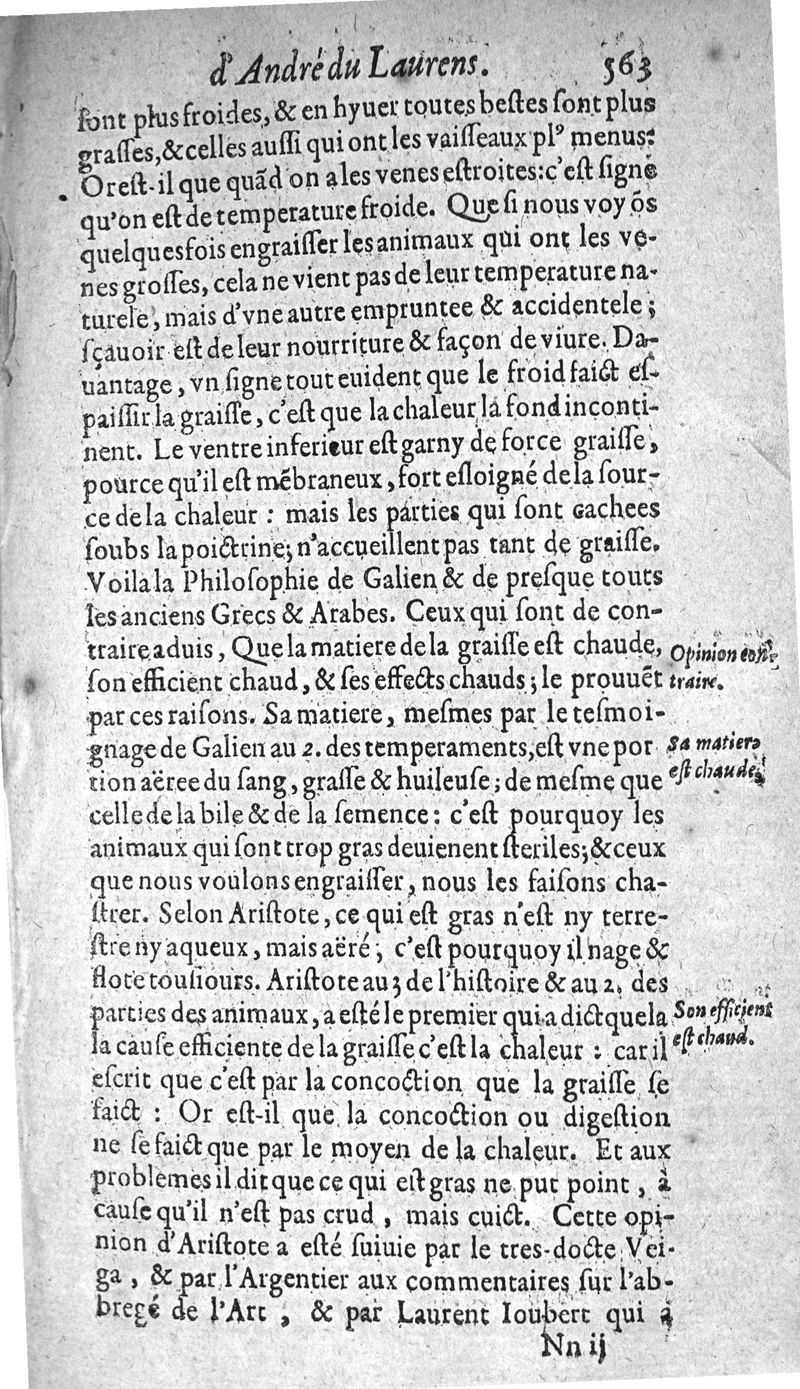 d'André du Laurens. 563
ſont plus froides, & en hyuer toutes beſtes ſont plus
graſſes, & celles auſſi qui ont les vaiſſeaux plꝰ menus:
Or eſt-il que quãd on a les venes eſtroites: c'eſt ſigne
qu'on eſt de temperature froide. Que ſi nous voyõs
quelquesfois engraiſſer les animaux qui ont les ve-
nes groſſes, cela ne vient pas de leur temperature na-
turele, mais d'vne autre empruntee & accidentele;
ſçauoir eſt de leur nourriture & façon de viure. Da-
uantage, vn ſigne tout euident que le froid faict eſ-
paiſſir la graiſſe, c'eſt que la chaleur la fond inconti-
nent. Le ventre inferieur eſt garny de force graiſſe,
pource qu'il eſt mẽbraneux, fort eſloigné de la ſour-
ce de la chaleur : mais les parties qui ſont cachees
ſoubs la poictrine, n'accueillent pas tant de graiſſe.
Voila la Philoſophie de Galien & de preſque touts
les anciens Grecs & Arabes. Ceux qui ſont de con-
traire aduis, Que la matiere de la graiſſe eſt chaude,
ſon efficient chaud, & ſes effects chauds; le prouuẽt
par ces raiſons. Sa matiere, meſmes par le teſmoi-
gnage de Galien au 2. des temperaments, eſt vne por
tion aëree du ſang, graſſe & huileuſe; de meſme que
celle de la bile & de la ſemence : c'eſt pourquoy les
animaux qui ſont trop gras deuienent ſteriles; & ceux
que nous voulons engraiſſer, nous les faiſons cha-
ſtrer. Selon Ariſtote, ce qui eſt gras n'eſt ny terre-
ſtre ny aqueux, mais aëré; c'eſt pourquoy il nage &
flote touſiours. Ariſtote au 3 de l'hiſtoire & au 2. des
parties des animaux, a eſté le premier qui a dict que la
la cauſe efficiente de la graiſſe c'eſt la chaleur : car il
eſcrit que c'eſt par la concoction que la graiſſe ſe
faict : Or eſt-il que la concoction ou digeſtion
ne ſe faict que par le moyen de la chaleur. Et aux
problemes il dit que ce qui eſt gras ne put point, à
cauſe qu'il n'eſt pas crud, mais cuict. Cette opi-
nion d'Ariſtote a eſté ſuiuie par le tres-docte Vei-
ga, & par l'Argentier aux commentaires ſur l'ab-
bregé de l'Art, & par Laurent Ioubert qui a
Nn ij
Opinion con-
traire.
Sa matiere
eſt chaude.
Son efficient
eſt chaud.